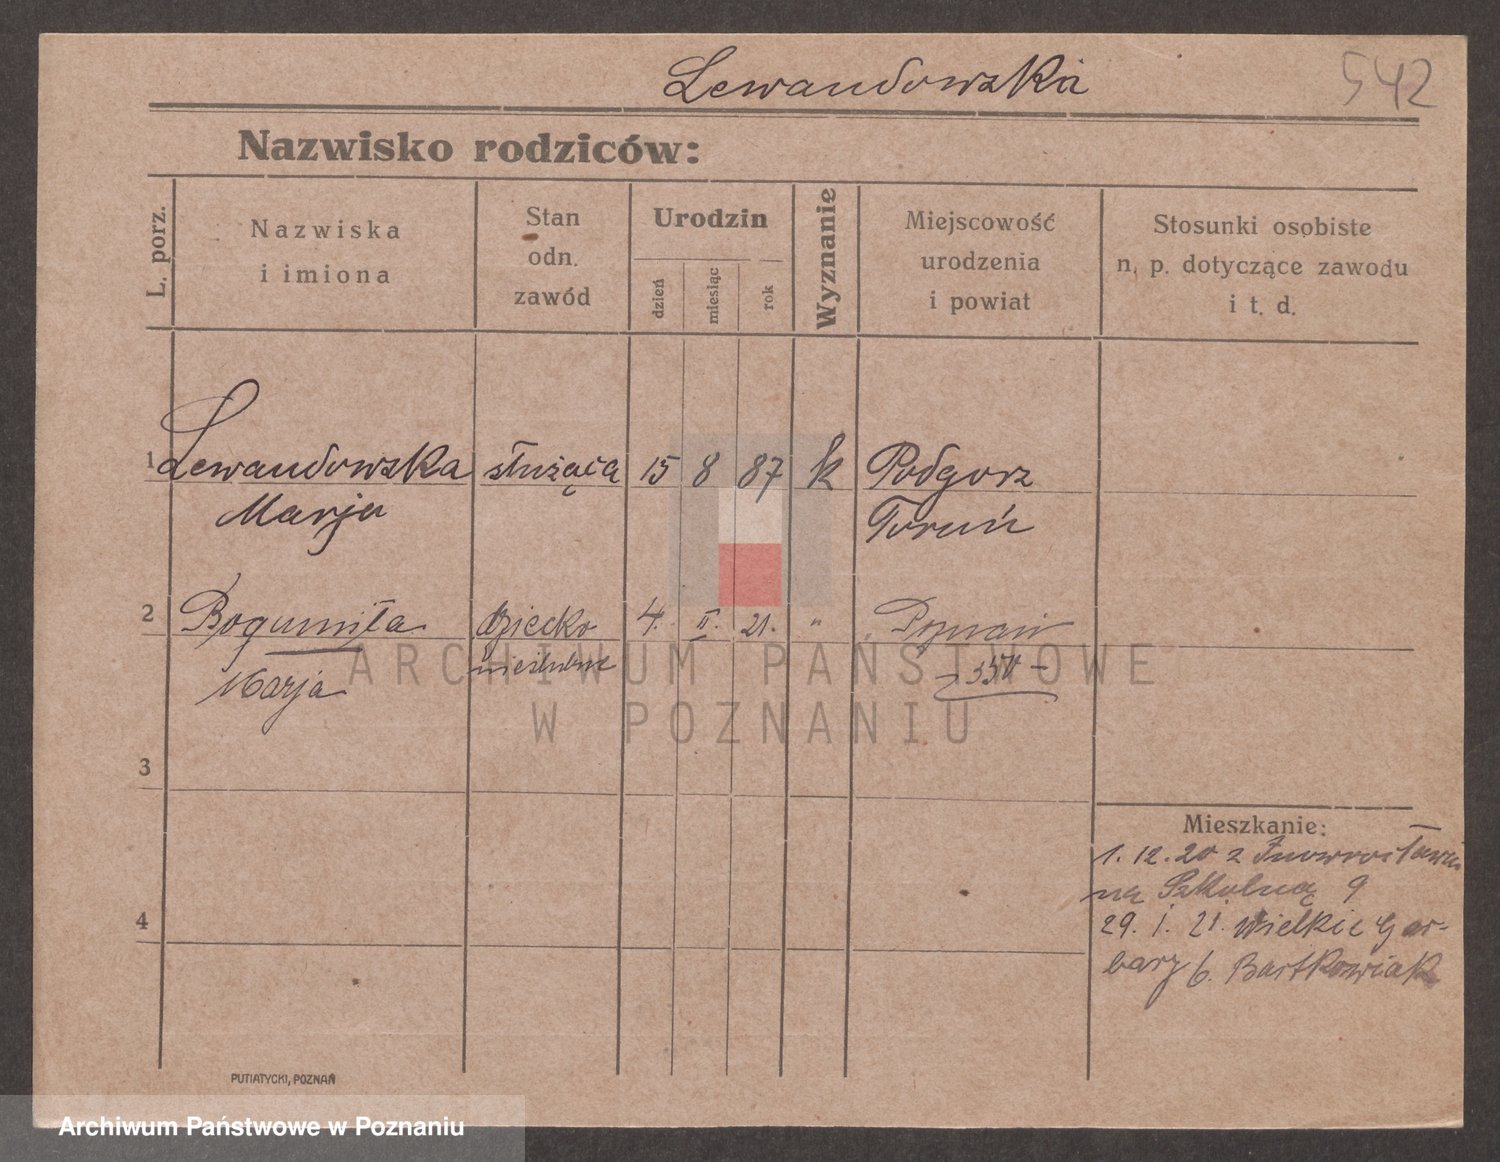 Lewandowska
542
Nazwisko rodziców:
L. porz.
Nazwiska
i imiona
Stan
odn.
zawód
Urodzin
dzień
miesiąc
rok
Wyznanie
Miejscowość
urodzenia
i powiat
Stosunki osobiste
n. p. dotyczące zawodu
i t. d.
1 Lewandowska służąca 15 8 87 k Podgorz
Marja Toruń
2 Bogumiła dziecko 4. II. 21. " Poznań
Marja nieślubne 350 -
3
4
Mieszkanie:
1. 12. 20 z Inowrocławia
na Szkolną 9
29. I. 21. Wielkie Gar-
bary 6. Bartkowiak
PUTIATYCKI, POZNAŃ
ARCHIWUM PAŃSTWOWE
W POZNANIU
Archiwum Państwowe w Poznaniu